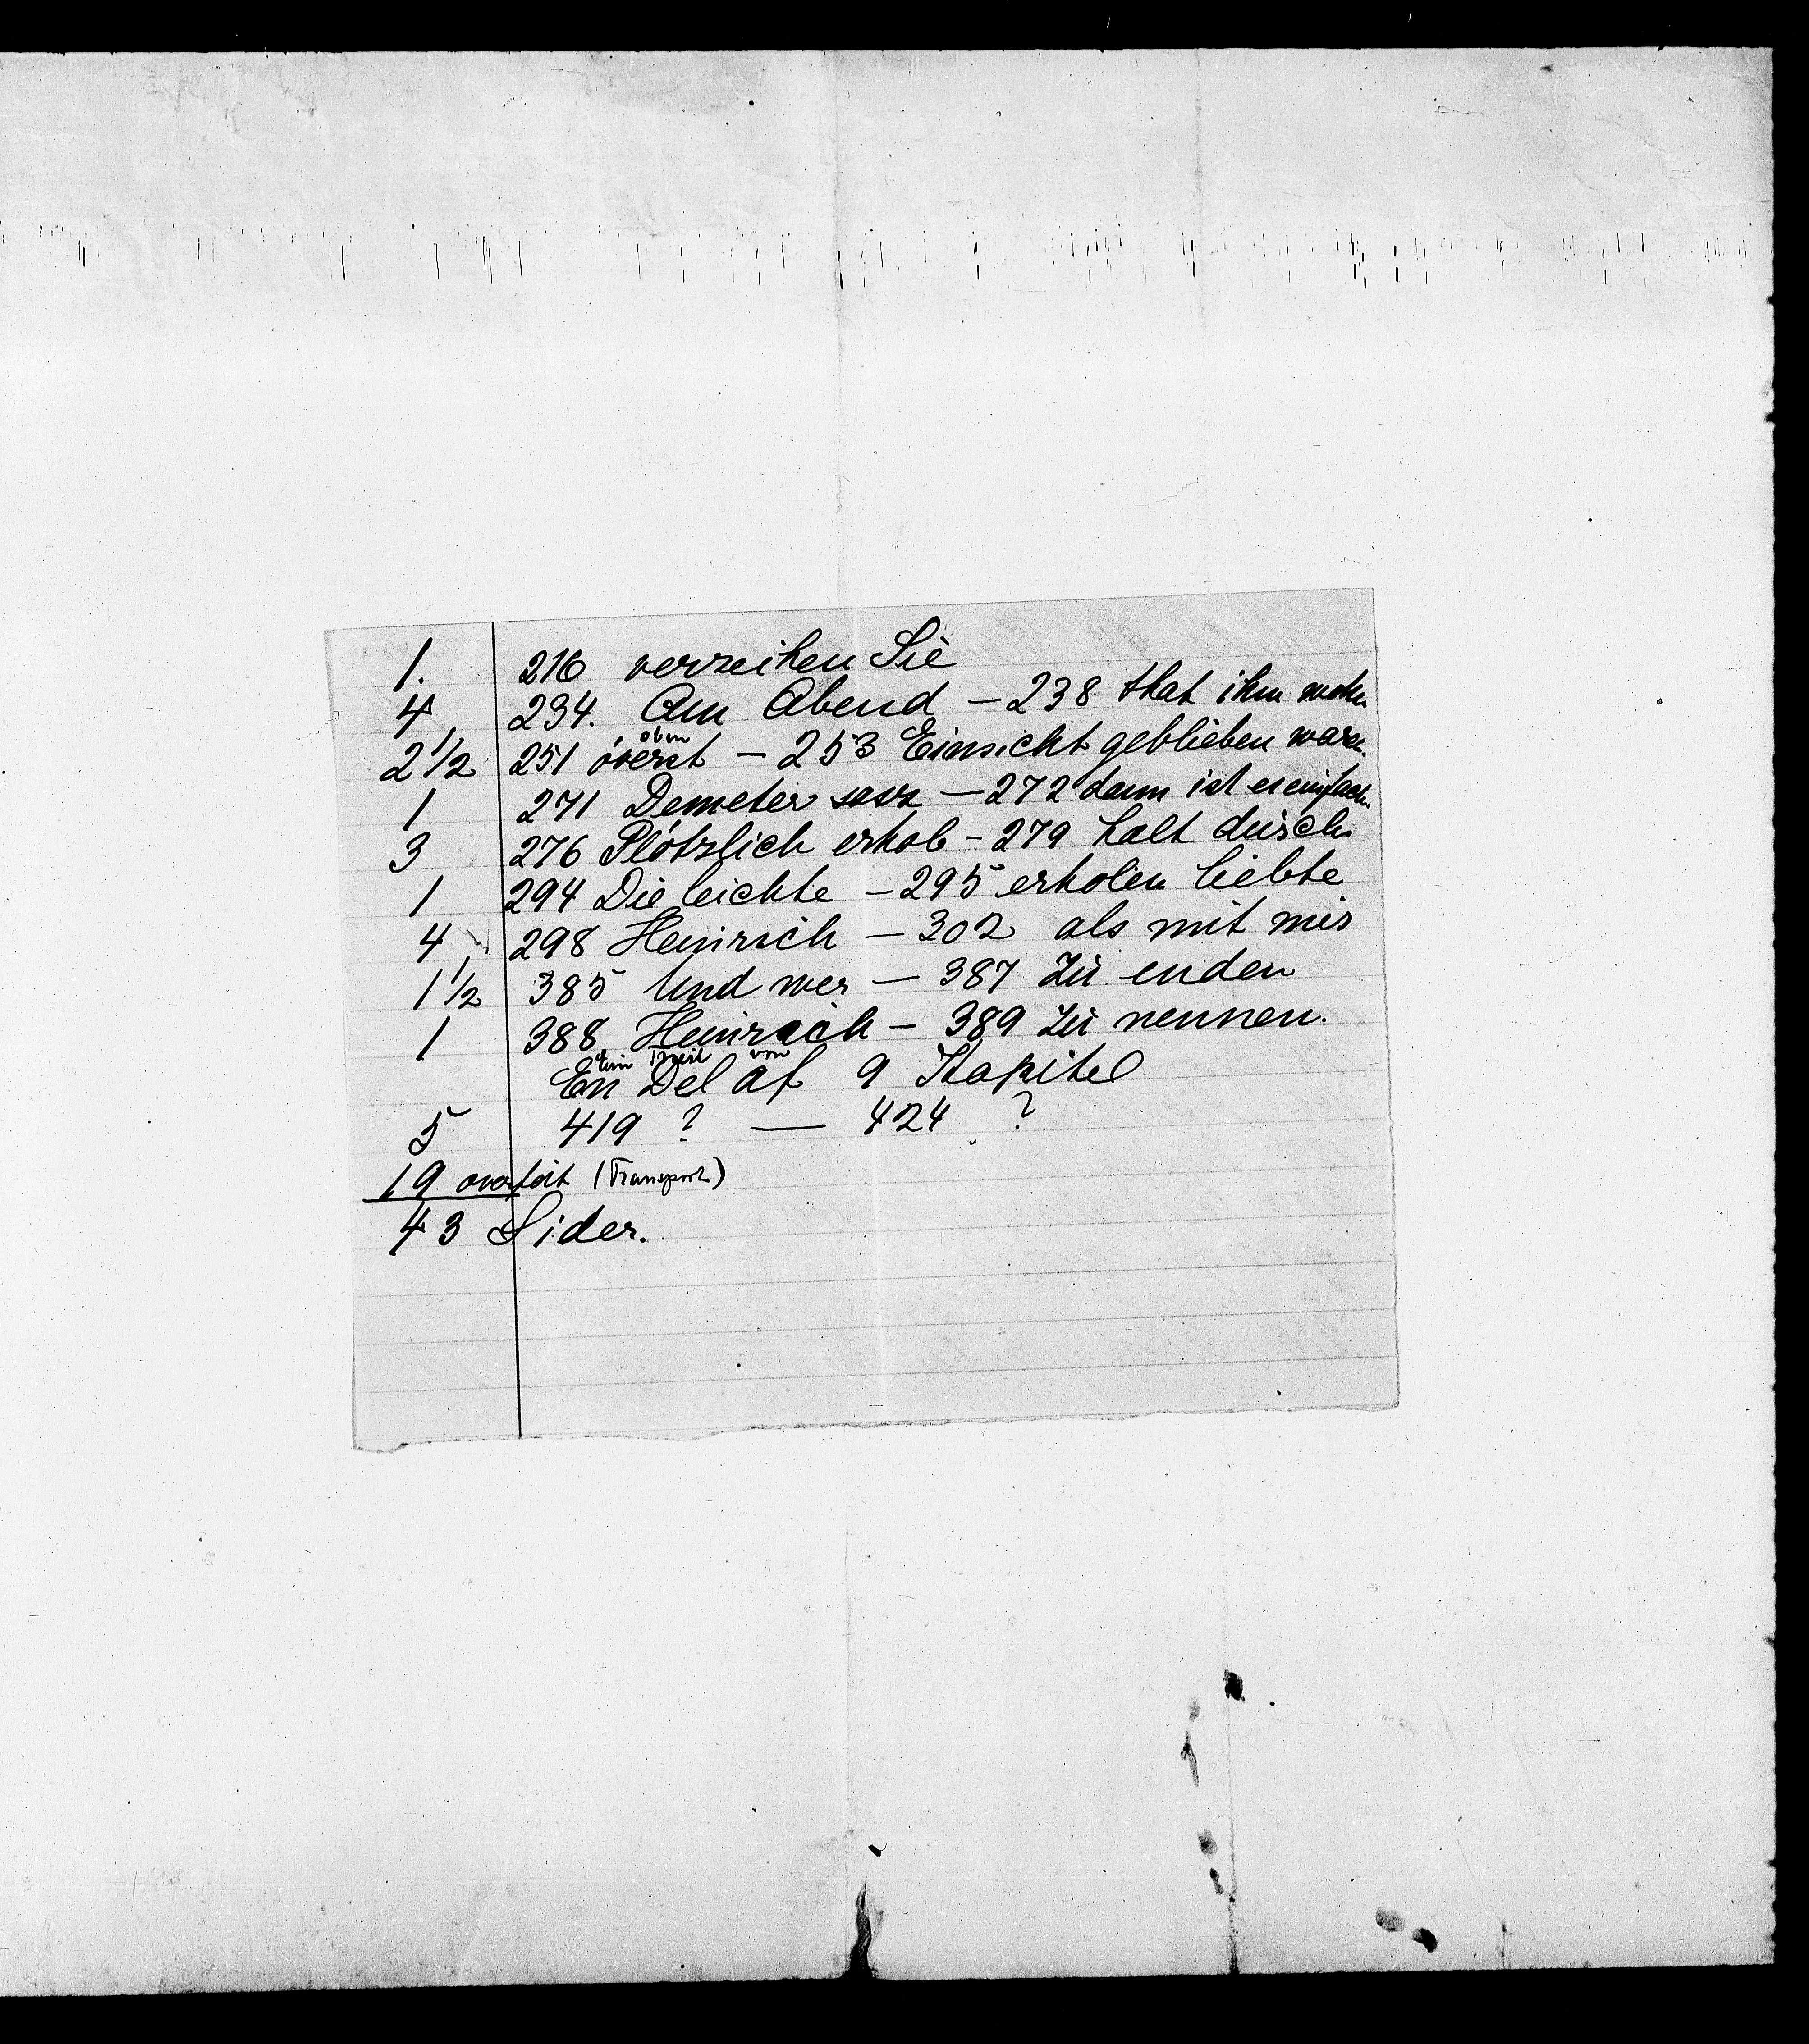 1. 216 verzeihen Sie
4 234. Am Abend – 238 that ihm wohl
oben
2 1/2 251 överst – 253 Einsicht geblieben waren.
1 271 Demeter – 272 dann ist er einfach
3 276 Plötzlich erhob – 279 halt durch
1 294 Die leichte – 295 erholen liebte
4 298 Heinrich – 302 als mit mir
1 1/2 385 Und wer – 387 zu enden
1 388 Heinrich – 389 zu nennen.
ein Theil von
En Del af 9 Kapitel
5 419 ? — 424 ?
19 overført (Transport)
43 Sider.